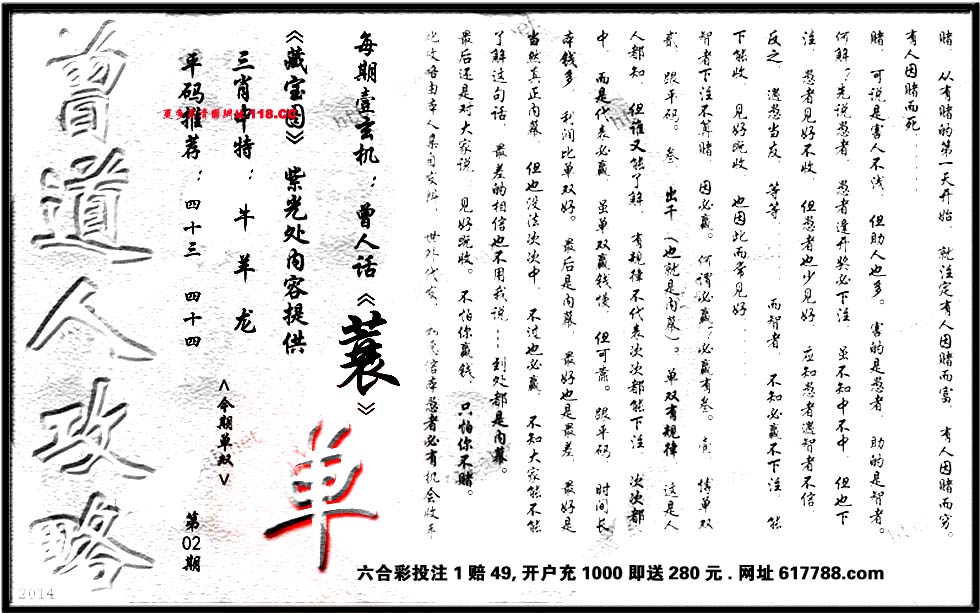 赌. 从有赌的第一天开始. 就注定有人因赌而富. 有人因赌而穷.
有人因赌而死......
赌. 可说是害人不浅. 但助人也多. 害的是愚者. 助的是智者。
何解? 先说愚者. 愚者逢开奖必下注. 虽不知中不中. 但也下
注. 愚者见好不收. 但愚者也少见好. 应知愚者遇智者不信.
反之. 遇愚当友. 等等...... 而智者. 不知必赢不下注. 能
下能收. 见好既收. 也因此而常见好......
智者下注不算赌. 因必赢。何谓必赢? 必赢有叁。壹. 博单双
贰. 跟平码。叁. 出千（也就是内幕）。单双有规律. 这是人
人都知. 但谁又能了解. 有规律不代表次次都能下注. 次次都
中. 而是代表必赢. 虽单双赢钱慢. 但可靠。跟平码. 时间长
本钱多. 利润比单双好。最后是内幕. 最好也是最差. 最好是
当然真正内幕. 但也没法次次中. 不过也必赢. 不知大家能不能
了解这句话. 最差的相信也不用我说...到处都是内幕。
最后还是对大家说. 见好既收。不怕你赢钱. 只怕你不赌。
此攻略由本人集自安排. 世外代发.
每期壹玄机：曾人话《蓑》
《藏宝图》紫光处内容提供
单
三肖中特：牛 羊 龙
<今期单双>
平码推荐：四十三 四十四
第02期
曾道人攻略
118.CC
六合彩投注1赔49,开户充1000即送280元.网址617788.com
2014